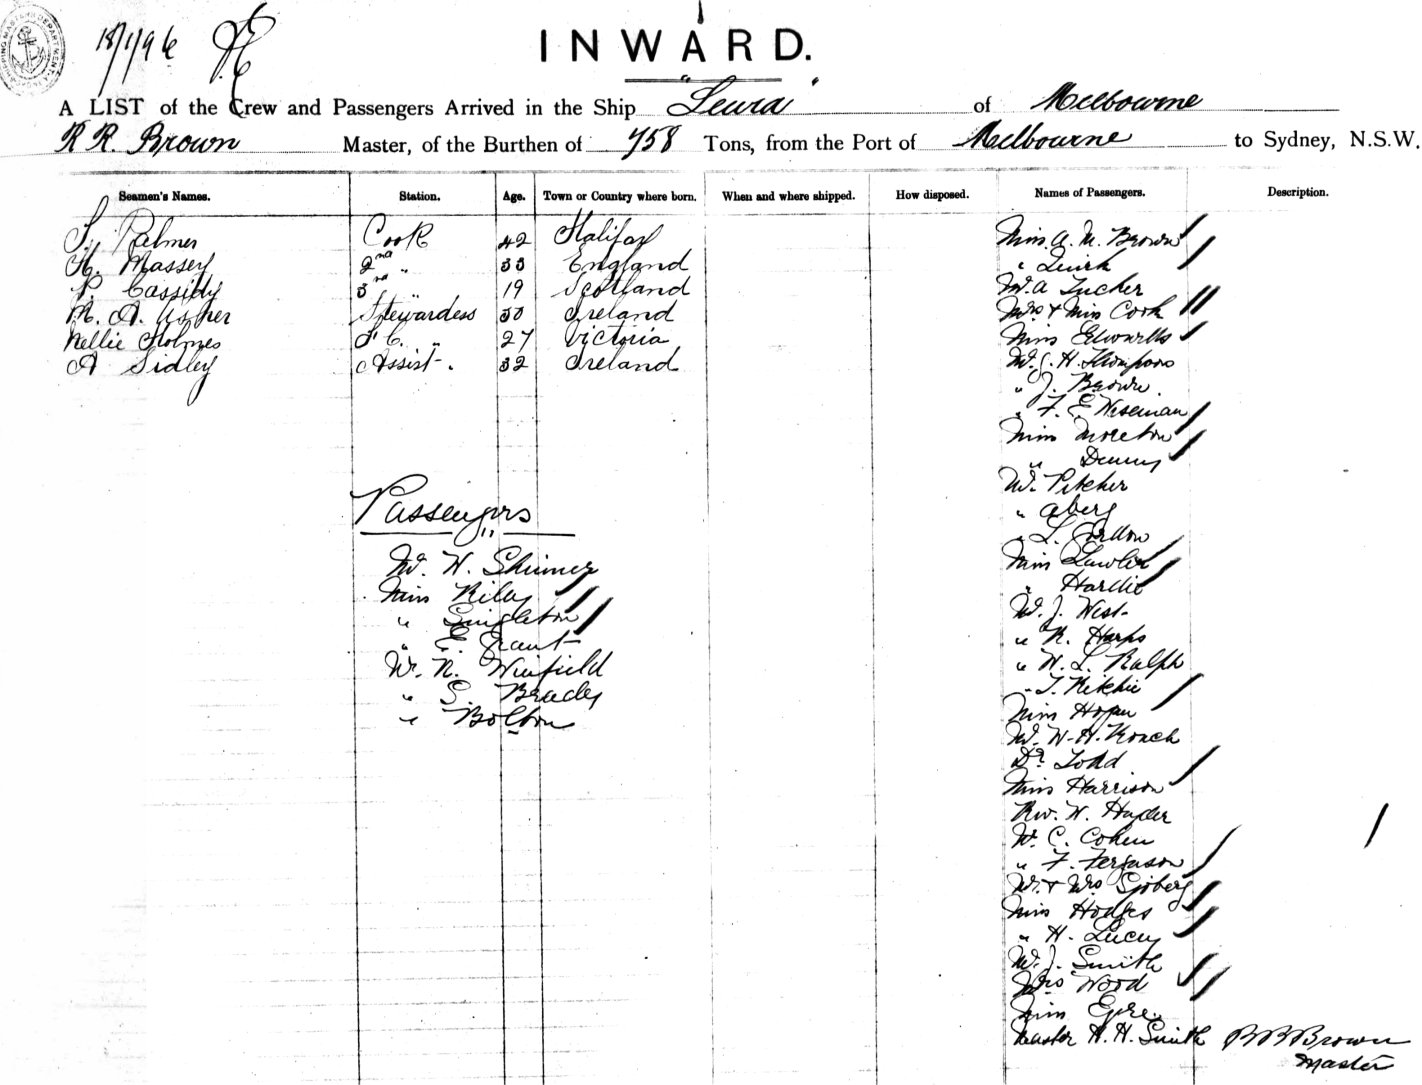 18/1/96
INWARD.
A LIST of the Crew and Passengers Arrived in the Ship "Leura" of Melbourne
R R. Brown Master, of the Burthen of 758 Tons, from the Port of Melbourne to Sydney, N.S.W.
Seamen's Names. Station. Age. Town or Country where born. When and where shipped. How disposed. Names of Passengers. Description.
S. Palmer Cook 42 Halifax
H. Massey 2nd " 33 England
P. Cassidy 3rd " 19 Scotland
M. A. Usher Stewardess 30 Ireland
Nellie Holmes F C. " 27 Victoria
A Sidley Assist. 32 Ireland
Passengers
Mr. W. Skinner
Miss Riley
" Singleton
" E. Grant
Mr. R. Winfield
" S. Brady
" Bolton
Miss A. M. Brown
" Quirk
Mr. A Tucher
Mrs & Miss Cook
Miss Edwards
Mr. J. H. Thompson
" J. Brown
" F. E. Wiseman
Miss Moreton
" Denny
Mr. Pitcher
" Aberg
" L.
Miss Lawler
" Hardie
Mr. J. West
" R. Harps
" W. L. Ralph
" T. Ritchie
Miss Hogan
Mr. W. H. Roach
Dr. Todd
Miss Harrison
Rev. W. Hayder
Mr. C. Cohen
" F. Ferguson
Mr. & Mrs Sjoberg
Miss Hodges
" H. Lucey
Mr. J. Smith
Mrs Wood
Miss Eyre
Master H. H. Smith
R R Brown
Master